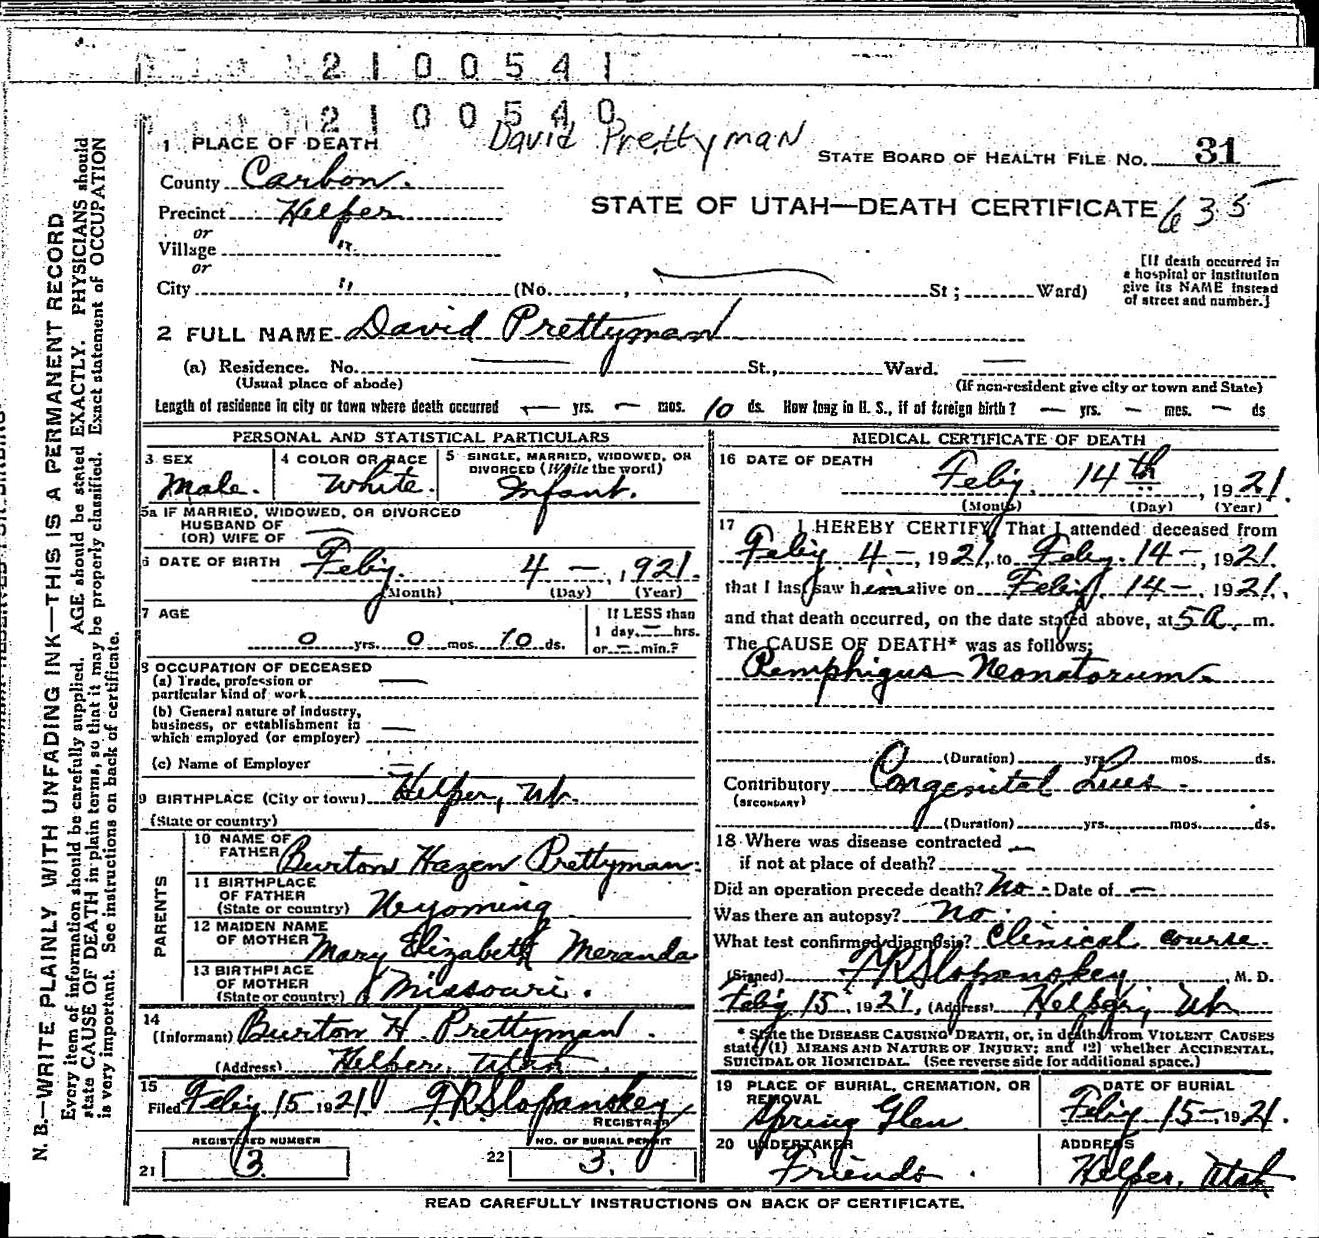 2100541
2100540
David Prettyman
1 PLACE OF DEATH
STATE BOARD OF HEALTH FILE NO. 31
County Carbon.
Precinct Helper
STATE OF UTAH—DEATH CERTIFICATE 635
or
Village "
or
City " (No. , St ; Ward)
[If death occurred in
a hospital or institution
give its NAME instead
of street and number.]
2 FULL NAME David Prettyman
(a) Residence. No. — St., Ward. —
(Usual place of abode) (If non-resident give city or town and State)
Length of residence in city or town where death occurred — yrs. — mos. 10 ds. How long in U. S., if of foreign birth? — yrs. — mos. — ds
PERSONAL AND STATISTICAL PARTICULARS
3 SEX
Male.
4 COLOR OR RACE
White.
5 SINGLE, MARRIED, WIDOWED, OR
DIVORCED (Write the word)
Infant.
5a IF MARRIED, WIDOWED, OR DIVORCED
HUSBAND OF
(OR) WIFE OF —
6 DATE OF BIRTH Feby. 4 —, 1921.
(Month) (Day) (Year)
7 AGE
0 yrs. 0 mos. 10 ds.
If LESS than
1 day, — hrs.
or — min.?
8 OCCUPATION OF DECEASED
(a) Trade, profession or
particular kind of work —
(b) General nature of industry,
business, or establishment in
which employed (or employer) —
(c) Name of Employer —
9 BIRTHPLACE (City or town) Helper, Ut.
(State or country)
PARENTS
10 NAME OF
FATHER Burton Hazen Prettyman.
11 BIRTHPLACE
OF FATHER
(State or country) Wyoming
12 MAIDEN NAME
OF MOTHER Mary Elizabeth Meranda
13 BIRTHPLACE
OF MOTHER
(State or country) Missouri.
14
(Informant) Burton H. Prettyman.
(Address) Helper, Utah.
15
Filed Feby 15 1921 F.R. Slopanskey
REGISTRAR
REGISTERED NUMBER
21 3.
NO. OF BURIAL PERMIT
22 3.
MEDICAL CERTIFICATE OF DEATH
16 DATE OF DEATH Feby. 14th, 1921.
(Month) (Day) (Year)
17 I HEREBY CERTIFY, That I attended deceased from
Feby 4 —, 1921, to Feby. 14 —, 1921.
that I last saw him alive on Feby 14 —, 1921.,
and that death occurred, on the date stated above, at 5 A. m.
The CAUSE OF DEATH* was as follows:
Pemphigus Neonatorum.
(Duration) yrs. mos. ds.
Contributory Congenital Lues.
(SECONDARY)
(Duration) yrs. mos. ds.
18 Where was disease contracted —
if not at place of death?
Did an operation precede death? No - Date of —
Was there an autopsy? no.
What test confirmed diagnosis? Clinical course.
(Signed) F R Slopanskey, M. D.
Feby 15, 1921, (Address) Helper, Ut
* State the DISEASE CAUSING DEATH, or, in deaths from VIOLENT CAUSES
state (1) MEANS AND NATURE OF INJURY; and (2) whether ACCIDENTAL,
SUICIDAL OR HOMICIDAL. (See reverse side for additional space.)
19 PLACE OF BURIAL, CREMATION, OR
REMOVAL
Spring Glen
DATE OF BURIAL
Feby 15 —, 1921.
20 UNDERTAKER
Friends.
ADDRESS
Helper, Utah
READ CAREFULLY INSTRUCTIONS ON BACK OF CERTIFICATE.
N. B.—WRITE PLAINLY WITH UNFADING INK—THIS IS A PERMANENT RECORD
Every item of information should be carefully supplied. AGE should be stated EXACTLY. PHYSICIANS should
state CAUSE OF DEATH in plain terms, so that it may be properly classified. Exact statement of OCCUPATION
is very important. See instructions on back of certificate.